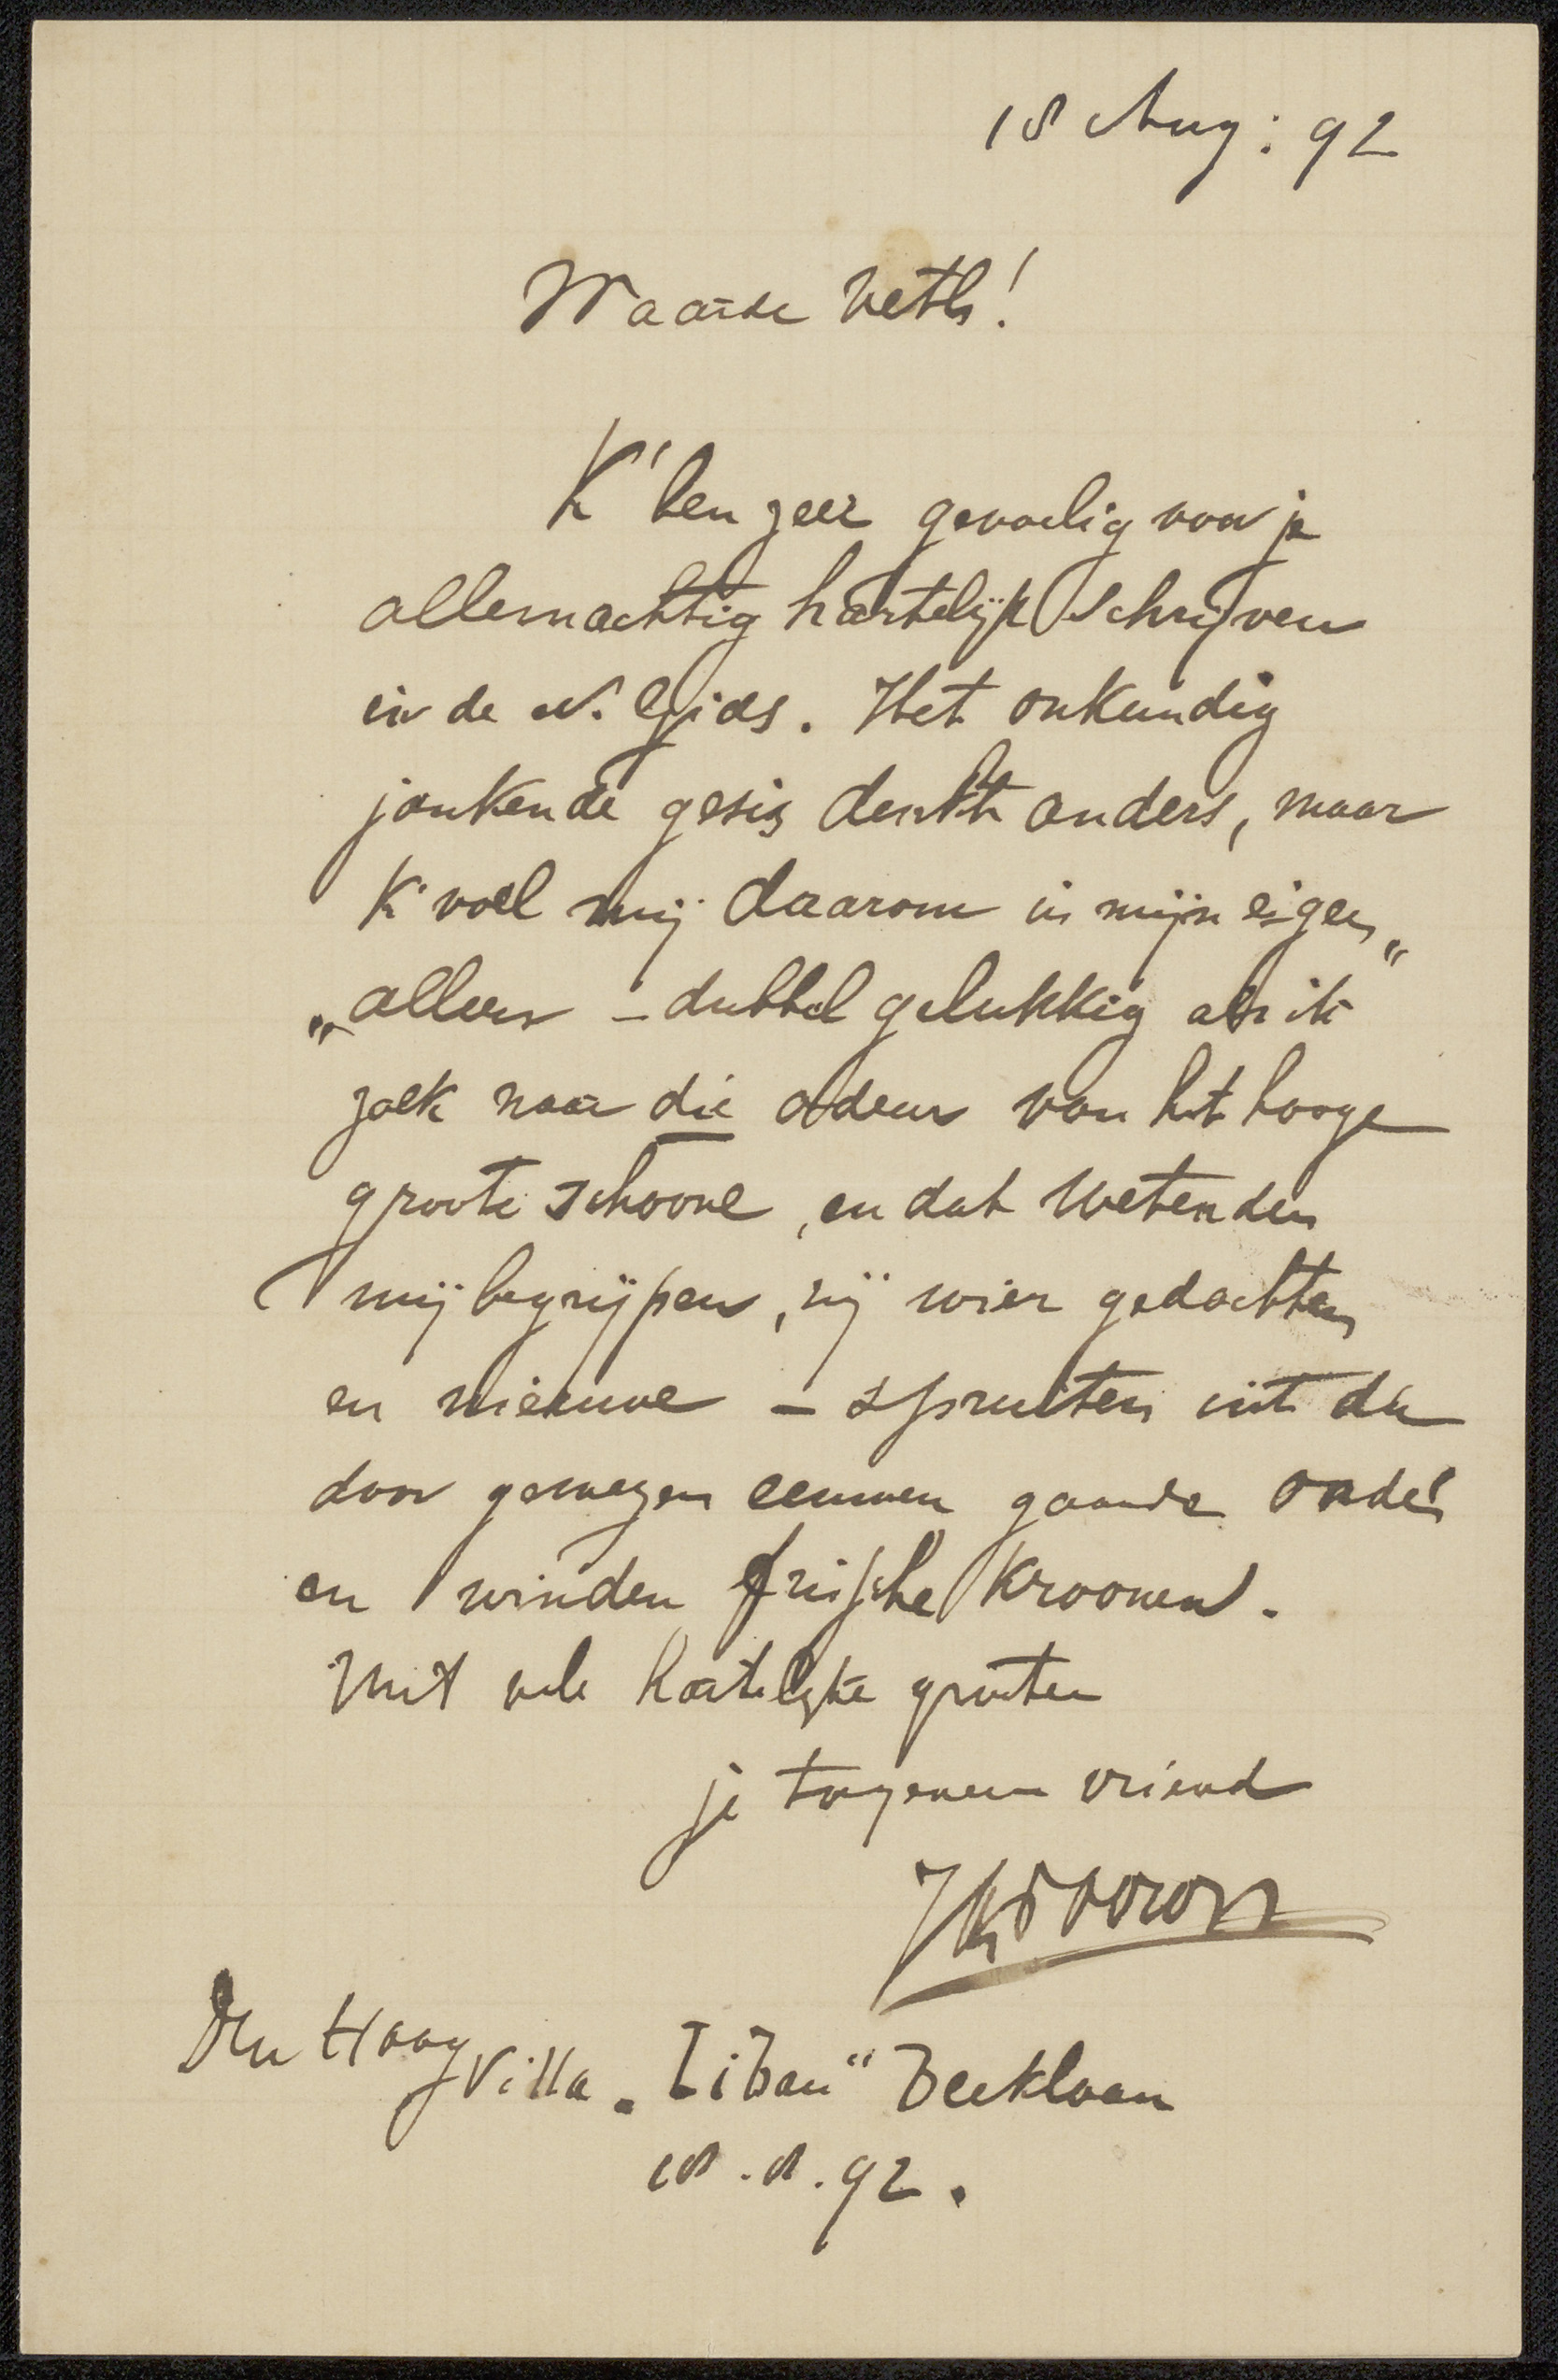 18 Aug: 92
Waarde Veth!
K' ben zeer gevoelig voor je
allemachtig hartelijk schrijven
in de N. Gids. Het onkundig
jankende gesis denkt anders, maar
K' voel mij daarom in mijn eigen „
„ alleen – dubbel gelukkig als ik
zoek naar die odeur van het hooge
groote schoone, en dat wetenden
mij begrijpen, zij wier gedachten
en nieuwe – spruiten uit de
door eeuwen gaande oude
en winden frissche Kroonen.
Met vele hartelijke groeten
je toegenegen vriend
JThToorop
Den Haag
Villa „Liban" Beeklaan
18.8.92.